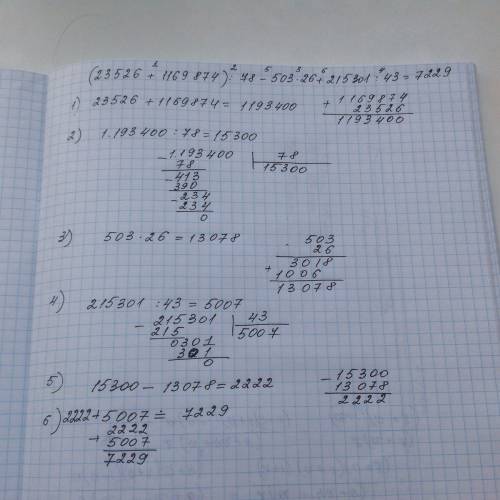 1 2 5 3 6 4
(23526 + 1169874) : 78 - 503 · 26 + 215301 : 43 = 7229
1) 23526 + 1169874 = 1193400
+ 1169874
23526
1193400
2) 1.193400 : 78 = 15300
- 1.193400 78
78 15300
- 413
390
- 234
234
0
3) 503 · 26 = 13078
· 503
26
3018
+ 1006
13078
4) 215301 : 43 = 5007
- 215301 43
215 5007
0301
301
0
5) 15300 - 13078 = 2222
- 15300
13078
2222
6) 2222 + 5007 = 7229
+ 2222
5007
7229